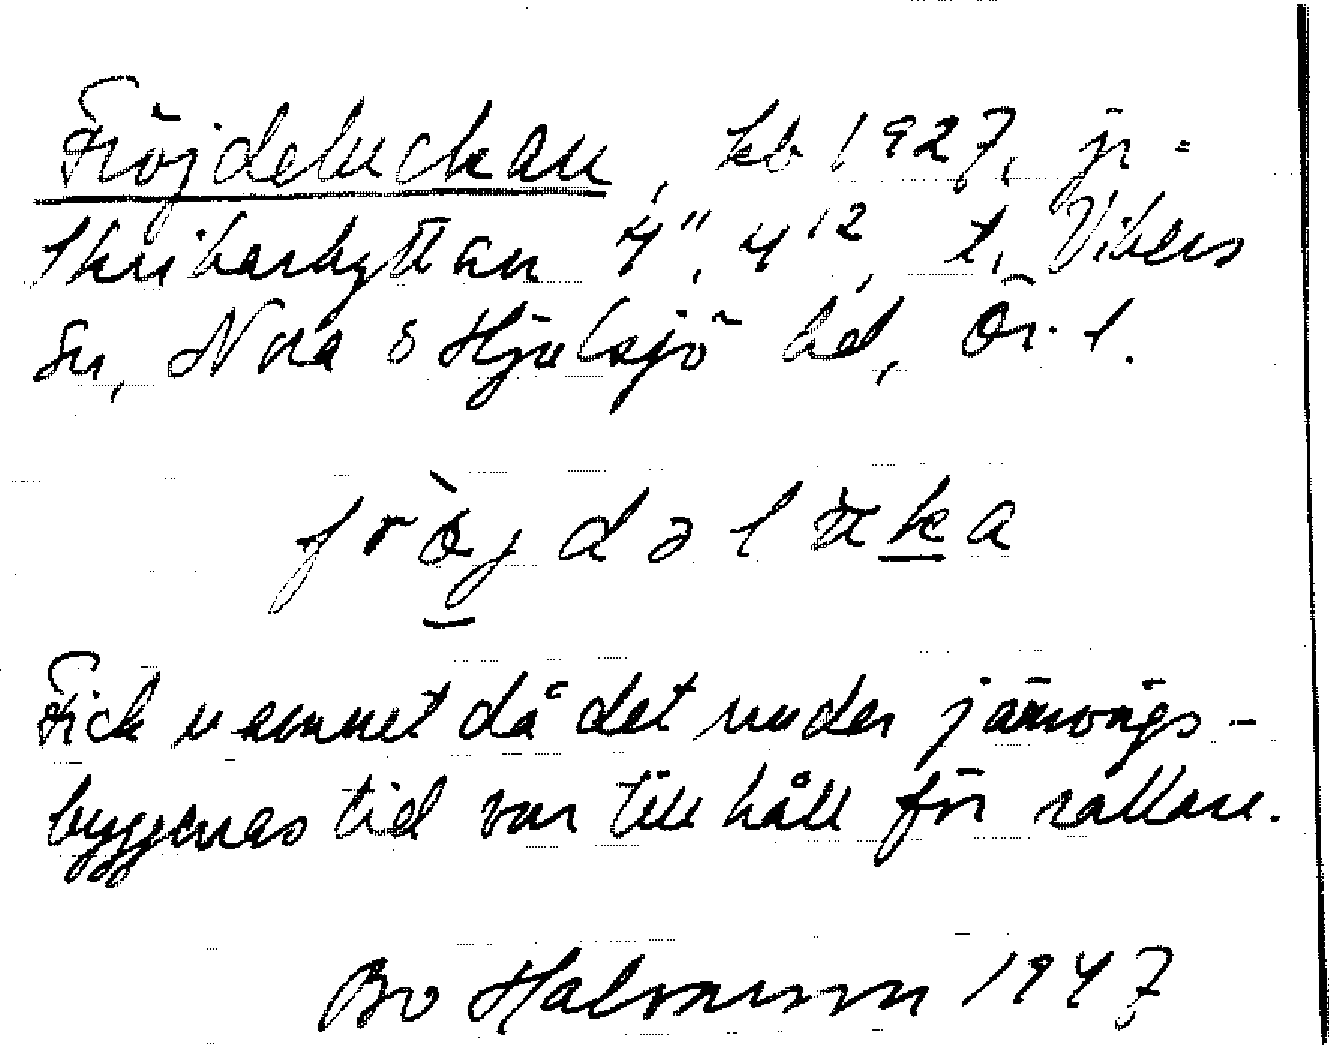 Fröjdeluckan, kb 1927, jr =
Skrikarhyttan 4¹¹, 4¹², t. Vikers
sn, Nora o Hjulsjö hd, Ör. l.
fröjdəluka
Fick namnet då det under järnvägs-
byggenas tid var tillhåll för rallare.
Bo 1947